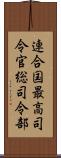 連合国最高司
令官総司令部